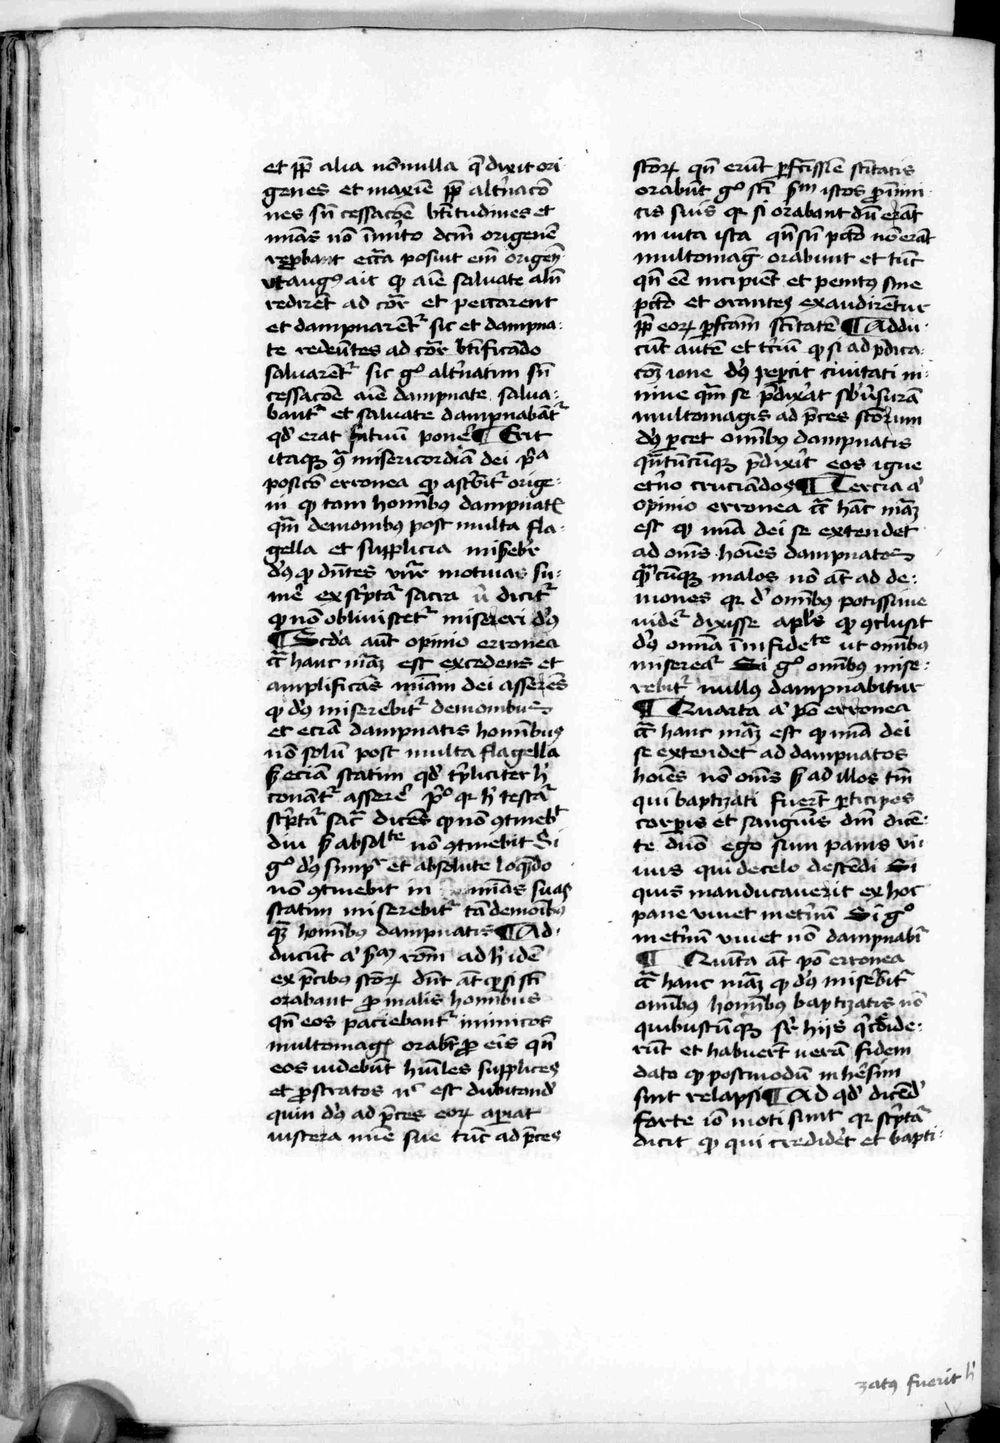 et ꝓpt̄ alia nōnulla q̄ dixit ori
genes et maxīe ꝓpt̄ alt̓nacō
nes sn̄ cessacōe bt̄itudines et
mīas nō īmīto dcm̄ origenē
reꝓbant ecc̄ia posuit em̄ origen̄
vt augꝰ ait ꝙ aīe saluate alīn
redirēt ad cor̄ et peccarent
et dampnarēt᷑ sic et dampna⸗
te redeūtes ad cor̄ bt̄ificādo
saluarēt᷑ sic gº alt̓natim sn̄
cessacōe aīe dampnate salua⸗
bant᷑ et saluate dampnabāt᷑
qd̓ erat poner̄ ¶ Erit
itaqꝫ ꝯ̄ misericordiā dei p̓ᵃ
posicō erronea ꝙ ascͥbit᷑ orige⸗
ni ꝙ tam homībꝰ dampnatꝭ
qm̄ demonibꝰ post multa fla⸗
gella et supplicia misereb̓r
dꝰ ꝙ dn̄tes motiuaꝫ su⸗
mē ex sc̓ptᷓ sacra v̄ dicit᷑
ꝙ nō obliuiscet᷑ misereri dꝰ
¶ Scd̓a aūt opinio erronea
cͣ hanc mᷓaꝫ est excedens et
amplificās mīam dei asserēs
ꝙ dꝰ miserebit᷑ demonibus
et eciā dampnatis homībꝰ
nō solū post multa flagella
sꝫ eciā statim qd̓ tͥpliciter h̓
conāt᷑ asserē pº qꝛ h̓ testᷓ
sc̓ptᷓ sacͣ dicēs ꝙ nō ꝯtinebit
diu sꝫ absolᵗᵉ nō ꝯtinebit Si
gº dꝰ simpᵣ et absolute loq̄ndo
nō ꝯtinebit in mīas suas
statim miserebit᷑ tā demōibꝰ
qᷓꝫ homībꝰ dampnatis ¶ Ad⸗
ducūt a̓ sᵃᵐ rōm̄ ad h̓ idē
ex p̄cibꝰ sctōꝝ dn̄t āt ꝙ si sc̄ti
orabant ꝓ malis hominibus
qn̄ eos paciebant᷑ inimicos
multomagꝭ orab̄t ꝓ eis qn̄
eos videbūt hūiles supplices
et ꝓstratos nͨ est dubitand̓
quin dꝰ ad p̄ces eoꝝ apiat
viscera mīe sue tūc ad p̄ces
sctōꝝ qn̄ erūt pfcīssīe sc̄titatis
orabūt gº sc̄ti sᵐ istos ꝓ inimi⸗
cis suis qꝛ si orabant dū erāt
in vita ista qn̄ sn̄ pctō nō erāt
multomagꝭ orabunt et tūc
qn̄ ēē incipiēt et penitꝰ sine
pctō et orantes exaudirētur
ꝓpt̄ eoꝝ pfctam sc̄titatē ¶ Addu⸗
cūt autē et tc̓iū ꝙ si ad p̓dica⸗
cōꝫ ione dꝰ peꝑcit ciuitati ni⸗
niue quā se p̓dix̓at sbūsurā
multomagis ad p̄ces sctōrum
dꝰ ꝑcet omībꝰ dampnatis
qn̄tūcūqꝫ p̓dix̓it eos igne
et̓no cruciādos ¶ Tercia a̓
opinio erronea cͣ hāc mᷓaꝫ
est ꝙ mīa dei se extendet
ad oms̄ hoīes dampnatos
qᷓcūqꝫ malos nō āt ad de⸗
mones qꝛ d̓ omībꝰ potissime
videt᷑ dixisse apl̓s ꝙ ꝯclusit
dꝰ omīa ī infideᵗᵉ ut omībꝰ
misereat᷑ Si gº omībꝰ mise⸗
rebit᷑ nullꝰ dampnabitur
¶ Quarta a̓ pō erronea
cͣ hanc mᷓaꝫ est ꝙ mīa dei
se extendet ad dampnatos
hoīes nō oms̄ sꝫ ad illos tm̄
qui baptizati fuer̄t ꝑticipes
corpīs et sangūis dn̄i dicē⸗
te dnō ego sum panis vi⸗
uus qui de celo descēdi Si
quis manducauerit ex hoc
pane viuet inet̓nū Si gº
inet̓nū viuet nō dampnabit᷑
¶ Quīta āt pō erronea
cͣ hanc mᷓaꝫ ꝙ dꝰ misereb̓it᷑
omībꝰ homībꝰ baptizatis nō
quibuscūqꝫ sꝫ hijs q̓ crēdide⸗
rūt et habuer̄t verā fidem
dato ꝙ postmodū in hēsim
sint relapsi ¶ Ad qd̓ dicēd̓
forte iō moti sunt qꝛ sc̓ptᷓ
dicit ꝙ qui credider̄t et bapti⸗
zatꝰ fuerit h̓